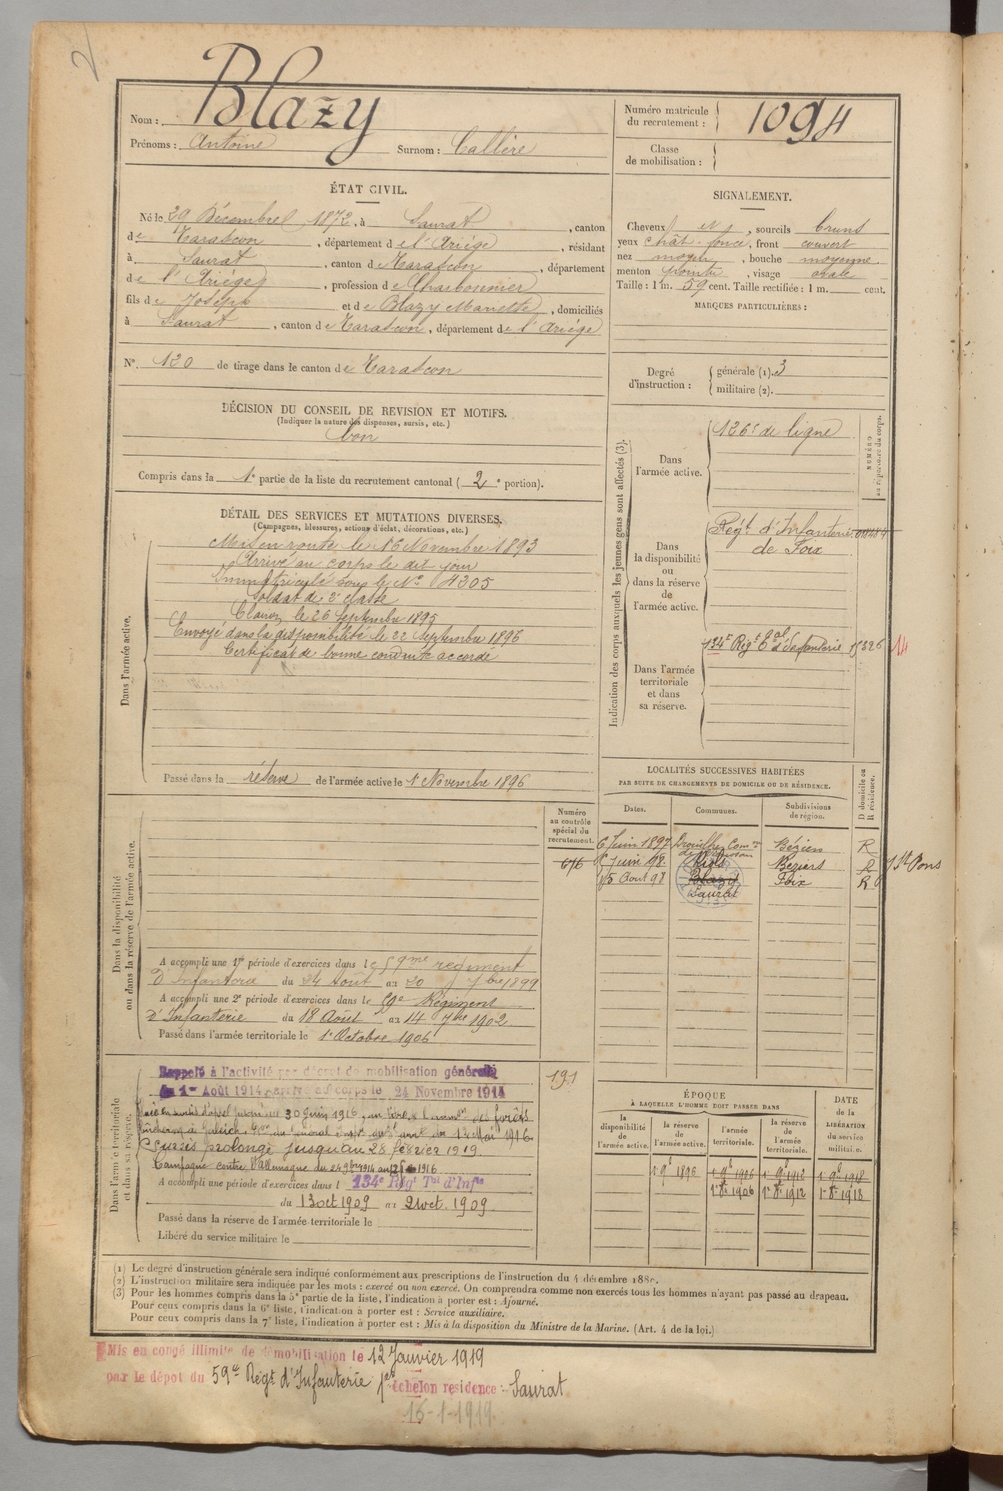 Nom : Blazy
Prénoms : Antoine Surnom : Callère
Numéro matricule du recrutement : 1094
Classe de mobilisation :
ÉTAT CIVIL.
Né le 29 Décembre 1872, à Saurat, canton
de Tarascon, département de l'Ariège, résidant
à Saurat, canton de Tarascon, département
de l'Ariège, profession de Charbonnier
fils de Joseph et de Blazy Mariette, domiciliés
à Saurat, canton de Tarascon, département de l'Ariège
N° 120 de tirage dans le canton de Tarascon
DÉCISION DU CONSEIL DE REVISION ET MOTIFS.
(Indiquer la nature des dispenses, sursis, etc.)
bon
Compris dans la 1e partie de la liste du recrutement cantonal (2e portion).
DÉTAIL DES SERVICES ET MUTATIONS DIVERSES.
(Campagnes, blessures, actions d'éclat, décorations, etc.)
Dans l'armée active.
Mis en route le 16 Novembre 1893
Arrivé au corps le dit jour
Immatriculé sous le N° 4305
Soldat de 2e classe
Clairon le 26 Septembre 1895
Envoyé dans la disponibilité le 22 Septembre 1896
Certificat de bonne conduite accordé
Passé dans la réserve de l'armée active le 1 Novembre 1896
SIGNALEMENT.
Cheveux et, sourcils bruns
yeux chât. foncé, front couvert
nez moyen, bouche moyenne
menton pointu, visage ovale
Taille : 1 m. 59 cent. Taille rectifiée : 1 m. cent.
MARQUES PARTICULIÈRES :
Degré d'instruction : générale (1). 3
militaire (2).
Indication des corps auxquels les jeunes gens sont affectés (3).
NUMÉRO au répertoire du corps.
Dans l'armée active.
126e de ligne
Dans la disponibilité ou dans la réserve de l'armée active.
Régt. d'Infanterie
de Foix
Dans l'armée territoriale et dans sa réserve.
134e Régt tal d'Infanterie 15326 14
LOCALITÉS SUCCESSIVES HABITÉES
PAR SUITE DE CHANGEMENTS DE DOMICILE OU DE RÉSIDENCE.
Dates. Communes. Subdivisions de région. D domicile ou R résidence.
6 Juin 1897 Béziers R
Juin 98 Riols Béziers R St Pons
15 Août 98 Blazy Foix R
Saurat
Numéro au contrôle spécial du recrutement.
676
Dans la disponibilité ou dans la réserve de l'armée active.
A accompli une 1re période d'exercices dans le 59me régiment
D'Infanterie du 24 Août au 20 7bre 1899
A accompli une 2e période d'exercices dans le 59e Régiment
d'Infanterie du 18 Août au 14 7bre 1902
Passé dans l'armée territoriale le 1er Octobre 1906
Dans l'armée territoriale et dans sa réserve.
Rappelé à l'activité par décret de mobilisation générale
du 1er Août 1914 arrivé au corps le 24 Novembre 1914
191
30 Juin 1916
Sursis prolongé jusqu'au 28 février 1919.
Campagne contre l'Allemagne du 24 9bre 1914 au 1916
A accompli une période d'exercices dans l 134e Régt Tal d'Infie
du 13 oct 1909 au 21 oct. 1909
Passé dans la réserve de l'armée territoriale le
Libéré du service militaire le
ÉPOQUE
À LAQUELLE L'HOMME DOIT PASSER DANS
la disponibilité de l'armée active.
la réserve de l'armée active.
l'armée territoriale.
la réserve de l'armée territoriale.
DATE de la LIBÉRATION du service militaire.
1 9b 1896 1 9b 1906 1 9b 1912 1 9b 1918
1er 8b 1906 1er 8b 1912 1er 8b 1918
(1) Le degré d'instruction générale sera indiqué conformément aux prescriptions de l'instruction du 4 décembre 1889.
(2) L'instruction militaire sera indiquée par les mots : exercé ou non exercé. On comprendra comme non exercés tous les hommes n'ayant pas passé au drapeau.
(3) Pour les hommes compris dans la 5e partie de la liste, l'indication à porter est : Ajourné.
Pour ceux compris dans la 6e liste, l'indication à porter est : Service auxiliaire.
Pour ceux compris dans la 7e liste, l'indication à porter est : Mis à la disposition du Ministre de la Marine. (Art. 4 de la loi.)
Mis en congé illimité de démobilisation le 12 Janvier 1919
par le dépôt du 59e Régt d'Infanterie 1er échelon résidence : Saurat
15-1-1919